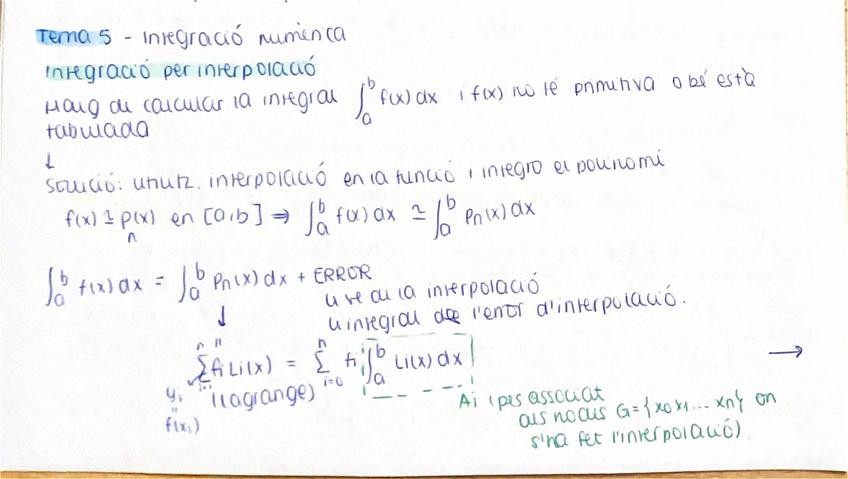 Tema 5 - Integració numèrica
Integració per interpolació
Haig de calcular la integral ∫_a^b f(x) dx i f(x) no té primitiva o bé està
tabulada
↓
Solució: utilitz. interpolació en la funció i integro el polinomi
f(x) ≃ p_n(x) en [a,b] ⇒ ∫_a^b f(x) dx ≃ ∫_a^b p_n(x) dx
∫_a^b f(x) dx = ∫_a^b p_n(x) dx + ERROR
↓ ve de la interpolació
integral de l'error d'interpolació.
∑_{i=0}^n f_i L_i(x) = ∑_{i=0}^n f_i ∫_a^b L_i(x) dx →
y_i (Lagrange)
A_i (pes associat
"
f(x_i)
als nodes G={x_0 x_1 ... x_n} on
s'ha fet l'interpolació)